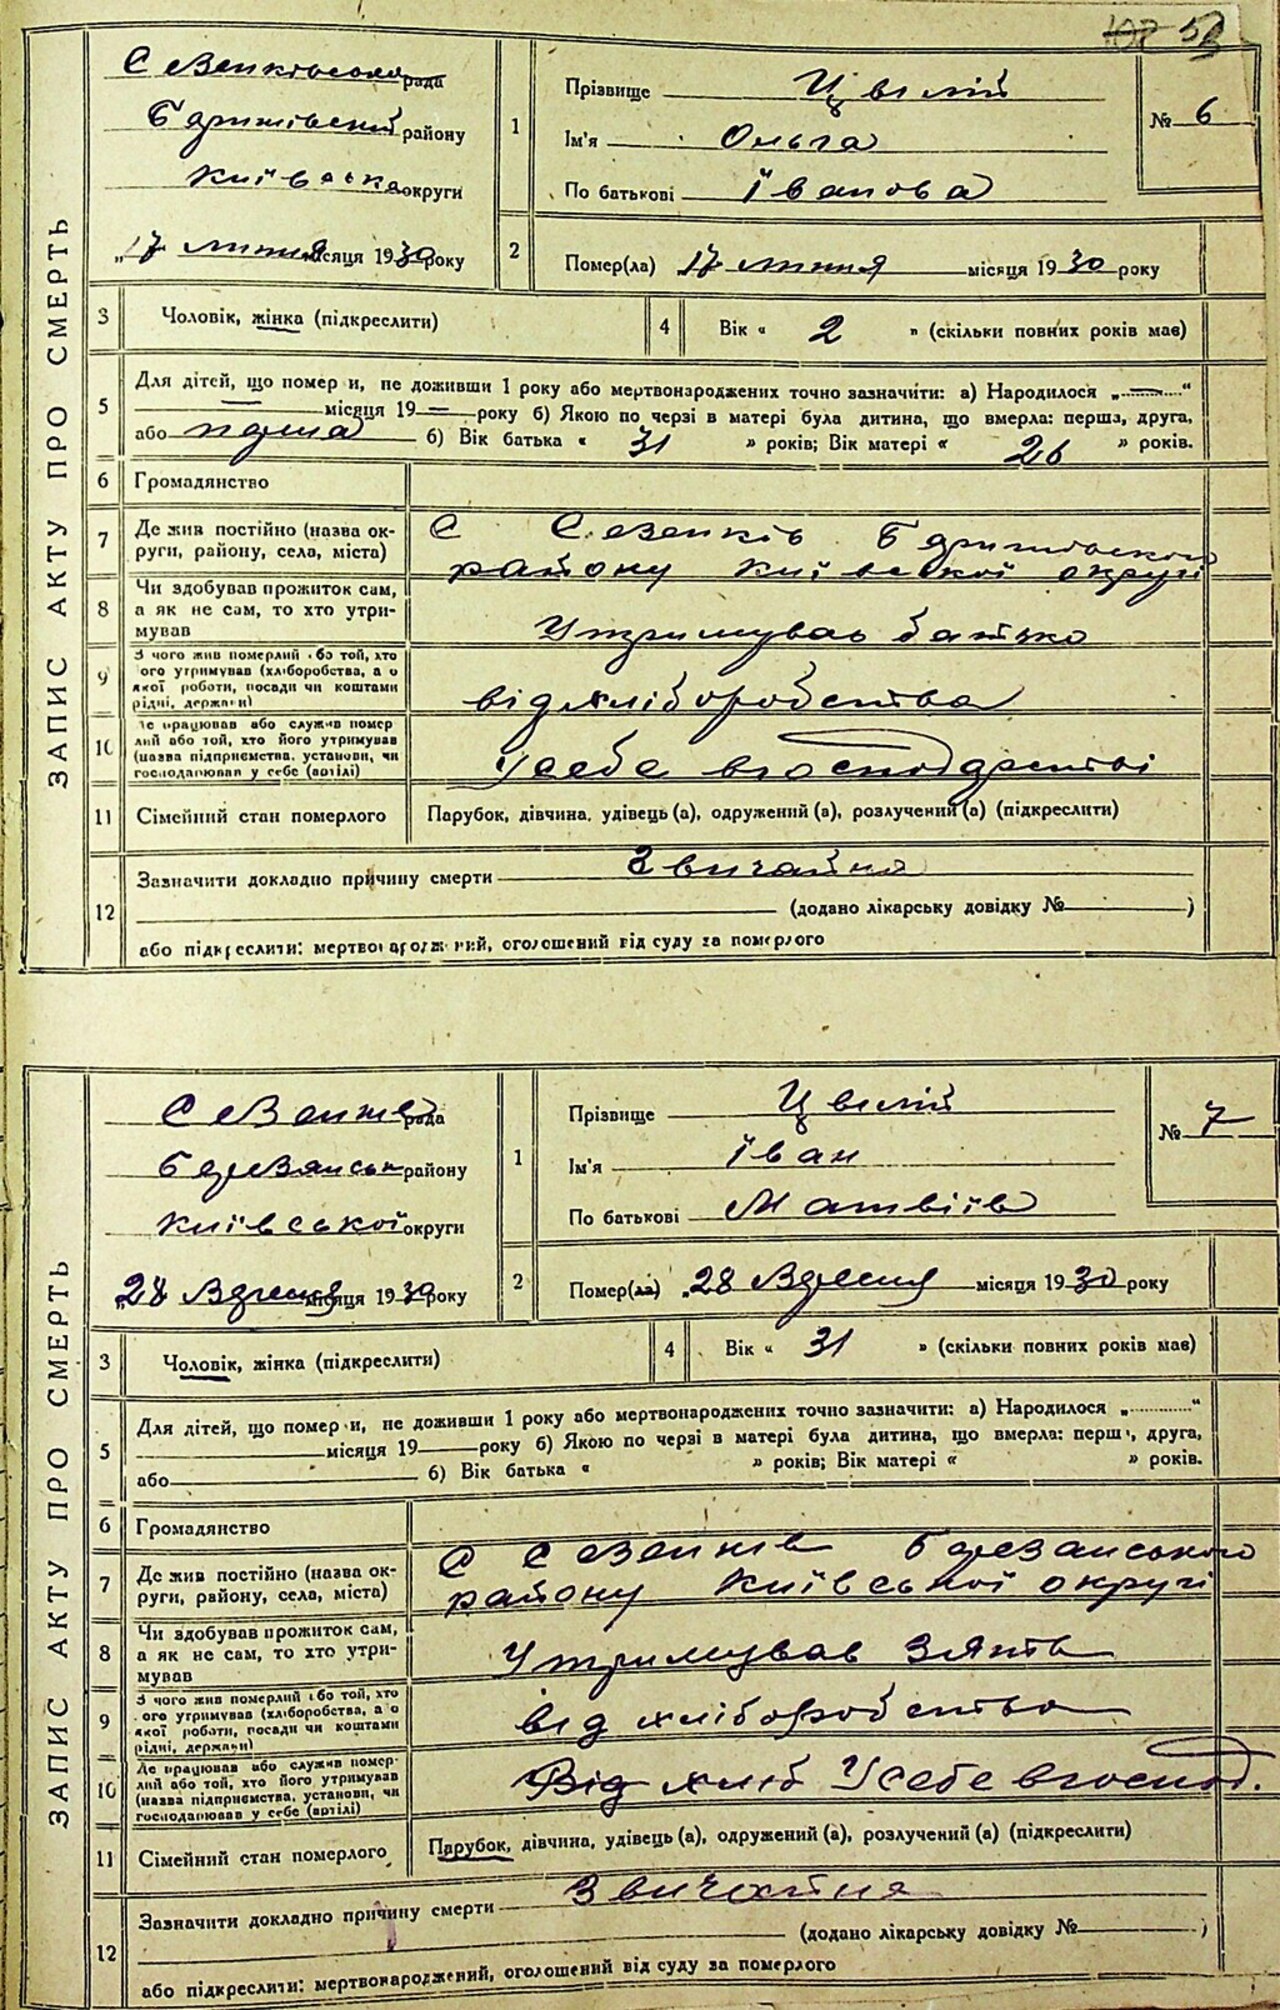 53
ЗАПИС АКТУ ПРО СМЕРТЬ
Семенківська рада
Баришівський району
Київська округи
„17 липня місяця 1930 року
1
Прізвище Цвілій
Ім'я Ольга
По батькові Іванова
№ 6
2
Помер(ла) 17 липня місяця 1930 року
3
Чоловік, жінка (підкреслити)
4
Вік « 2 » (скільки повних років має)
5
Для дітей, що помер и, не доживши 1 року або мертвонароджених точно зазначити: а) Народилося „—“
— місяця 19— року б) Якою по черзі в матері була дитина, що вмерла: перша, друга,
або перша б) Вік батька « 31 » років; Вік матері « 26 » років.
6
Громадянство
7
Де жив постійно (назва ок-
руги, району, села, міста)
С Баришівського
району Київської округі
8
Чи здобував прожиток сам,
а як не сам, то хто утри-
мував
Утримував батько
9
З чого жив померлий або той, хто
ого утримував (хліборобства, а о
якої роботи, посади чи коштами
рідні, держави)
від хліборобства
10
Де працював або служив помер
лий або той, хто його утримував
(назва підприємства, установи, чи
господарював у себе (артілі)
У себе в господарстві
11
Сімейний стан померлого
Парубок, дівчина, удівець (а), одружений (а), розлучений (а) (підкреслити)
12
Зазначити докладно причину смерти Звичайна
(додано лікарську довідку № )
або підкреслити: мертвонароджений, оголошений від суду за померлого
ЗАПИС АКТУ ПРО СМЕРТЬ
рада
Березанськ району
Київської округи
„28 Вресня місяця 1930 року
1
Прізвище Цвілій
Ім'я Іван
По батькові Матвіїв
№ 7
2
Помер(ла) „28 Вресня місяця 1930 року
3
Чоловік, жінка (підкреслити)
4
Вік « 31 » (скільки повних років має)
5
Для дітей, що помер и, не доживши 1 року або мертвонароджених точно зазначити: а) Народилося „ “
місяця 19 року б) Якою по черзі в матері була дитина, що вмерла: перш , друга,
або б) Вік батька « » років; Вік матері « » років.
6
Громадянство
7
Де жив постійно (назва ок-
руги, району, села, міста)
С Березанського
району Київської округі
8
Чи здобував прожиток сам,
а як не сам, то хто утри-
мував
Утримував Зять
9
З чого жив померлий або той, хто
ого утримував (хліборобства, а о
якої роботи, посади чи коштами
рідні, держави)
від хліборобства
10
Де працював або служив помер-
лий або той, хто його утримував
(назва підприємства, установи, чи
господарював у себе (артілі)
Від хліб У себе в господ.
11
Сімейний стан померлого
Парубок, дівчина, удівець (а), одружений (а), розлучений (а) (підкреслити)
12
Зазначити докладно причину смерти Звичайня
(додано лікарську довідку № )
або підкреслити: мертвонароджений, оголошений від суду за померлого